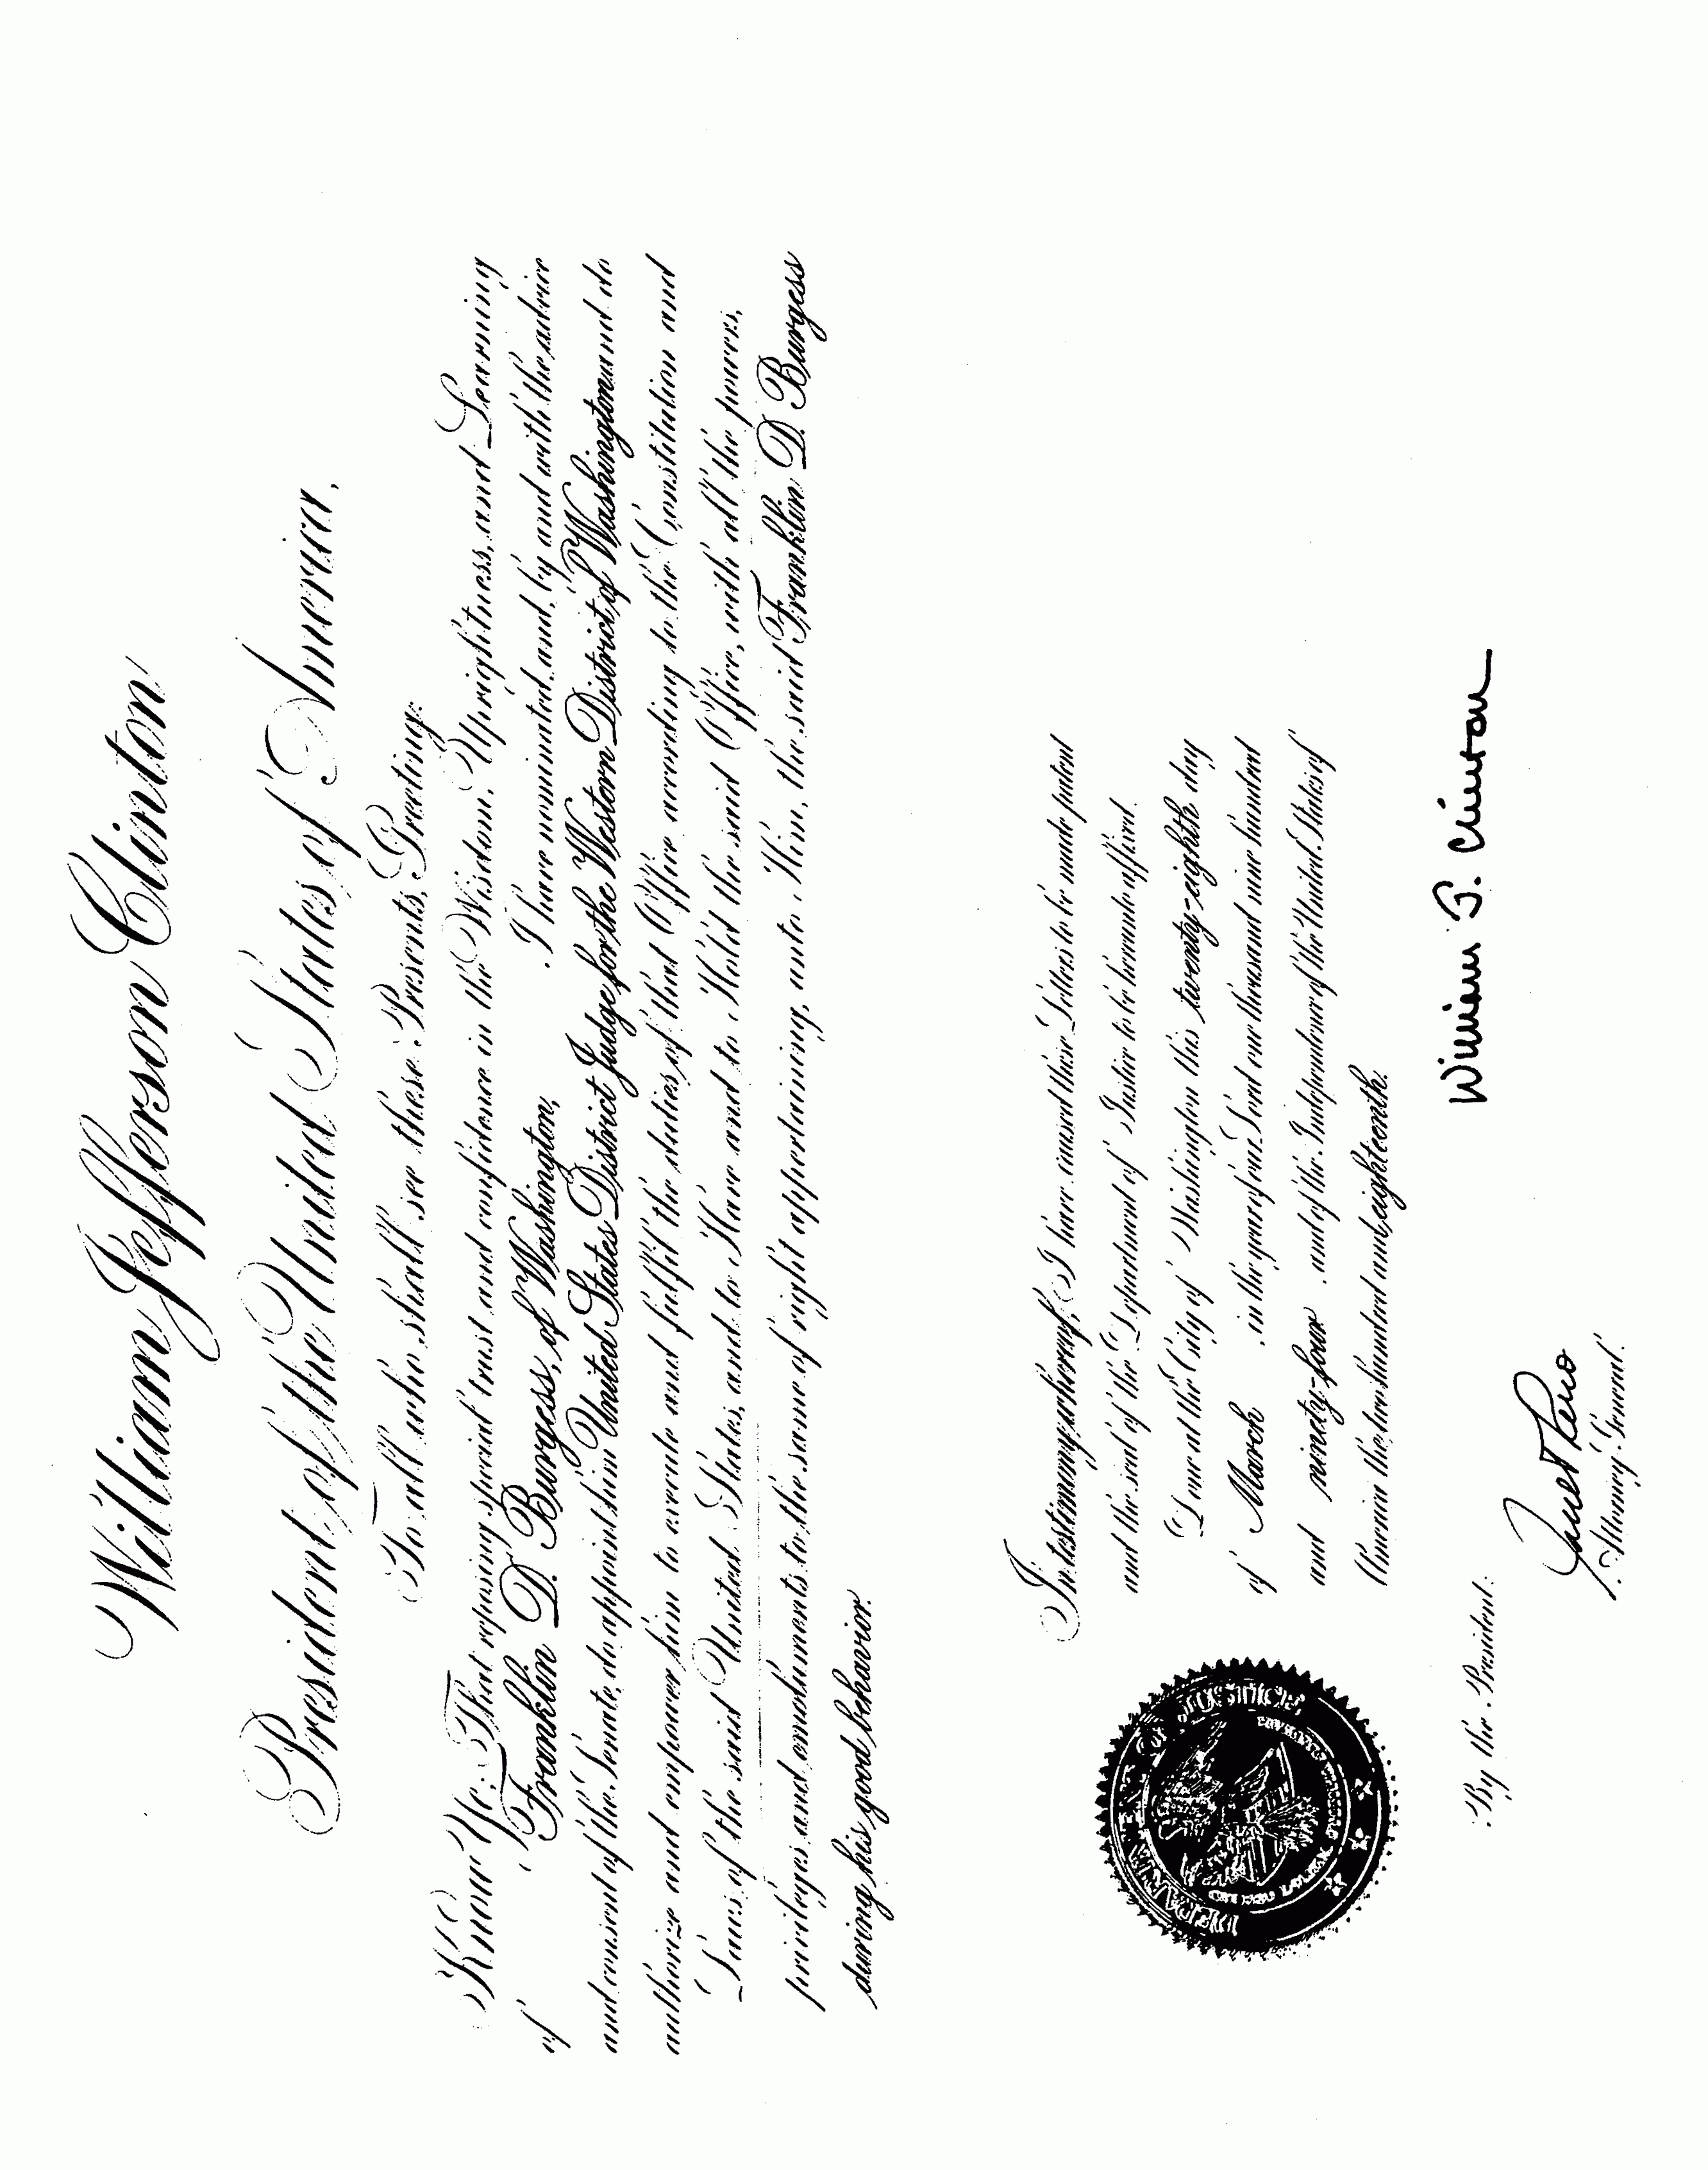 William Jefferson Clinton
President of the United States of America,
To all who shall see these Presents, Greeting:
Know Ye: That reposing special trust and confidence in the Wisdom, Uprightness, and Learning
of Franklin D. Burgess, of Washington, I have nominated, and, by and with the advice
and consent of the Senate, do appoint him United States District Judge for the Western District of Washington and do
authorize and empower him to execute and fulfil the duties of that Office according to the Constitution and
Laws of the said United States, and to Have and to Hold the said Office, with all the powers,
privileges and emoluments to the same of right appertaining, unto Him, the said Franklin D. Burgess
during his good behavior.
In testimony whereof, I have caused these Letters to be made patent
and the seal of the Department of Justice to be hereunto affixed.
Done at the City of Washington this twenty-eighth day
of March in the year of our Lord one thousand nine hundred
and ninety-four and of the Independence of the United States of
America the two hundred and eighteenth.
DEPARTMENT OF JUSTICE
William J. Clinton
By the President:
Janet Reno
Attorney General.